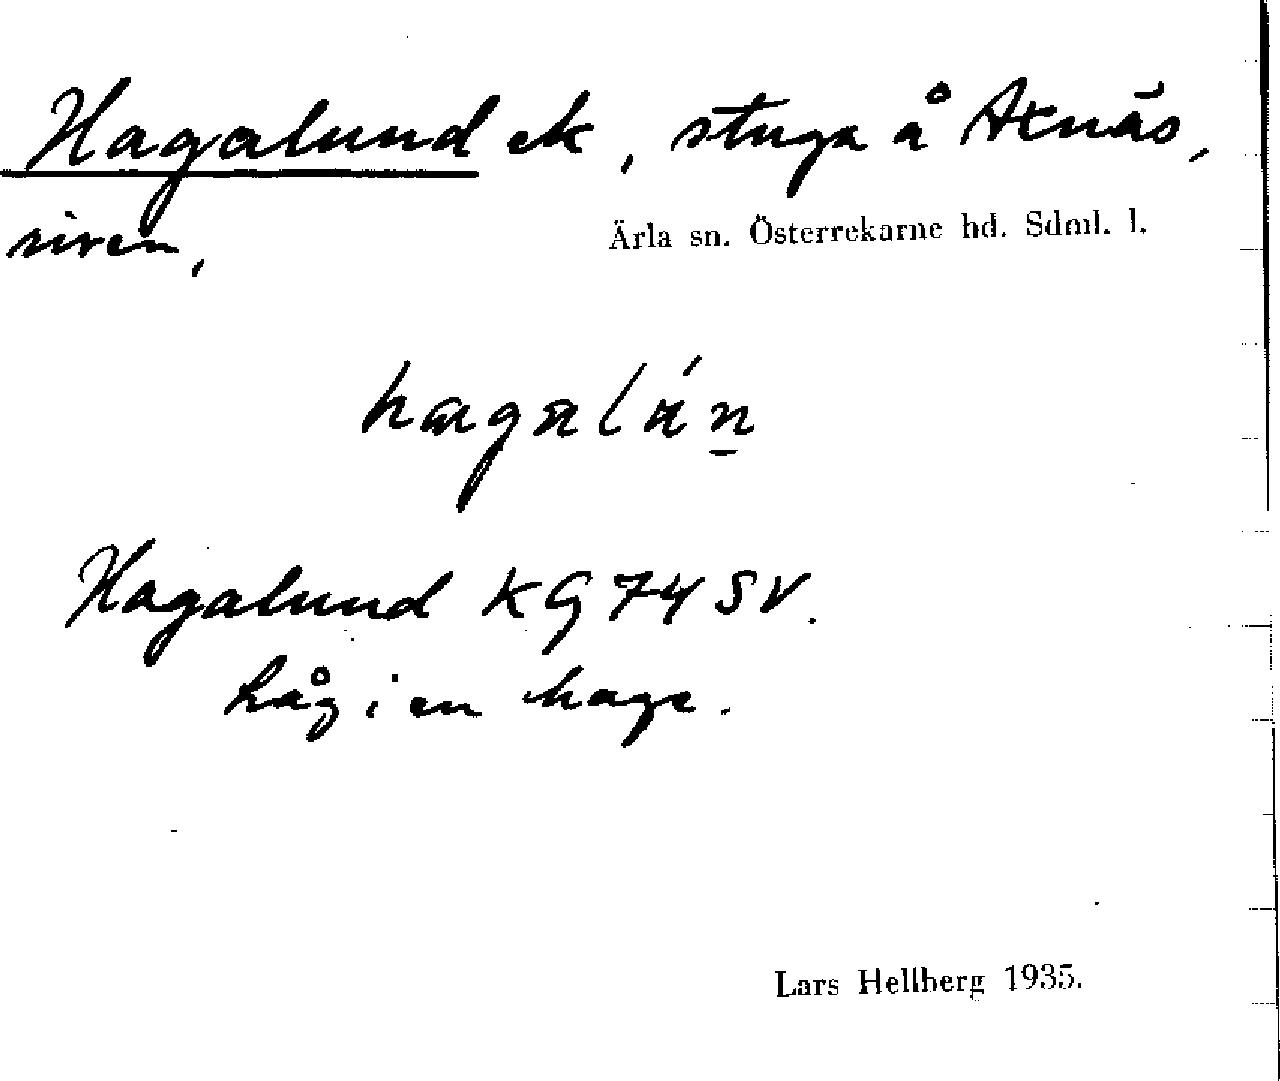 Hagalund ek, stuga å Axnäs,
riven,
Ärla sn. Österrekarne hd. Sdml. l.
Hagalund KG 74 SV.
Låg i en hage.
Lars Hellberg 1935.